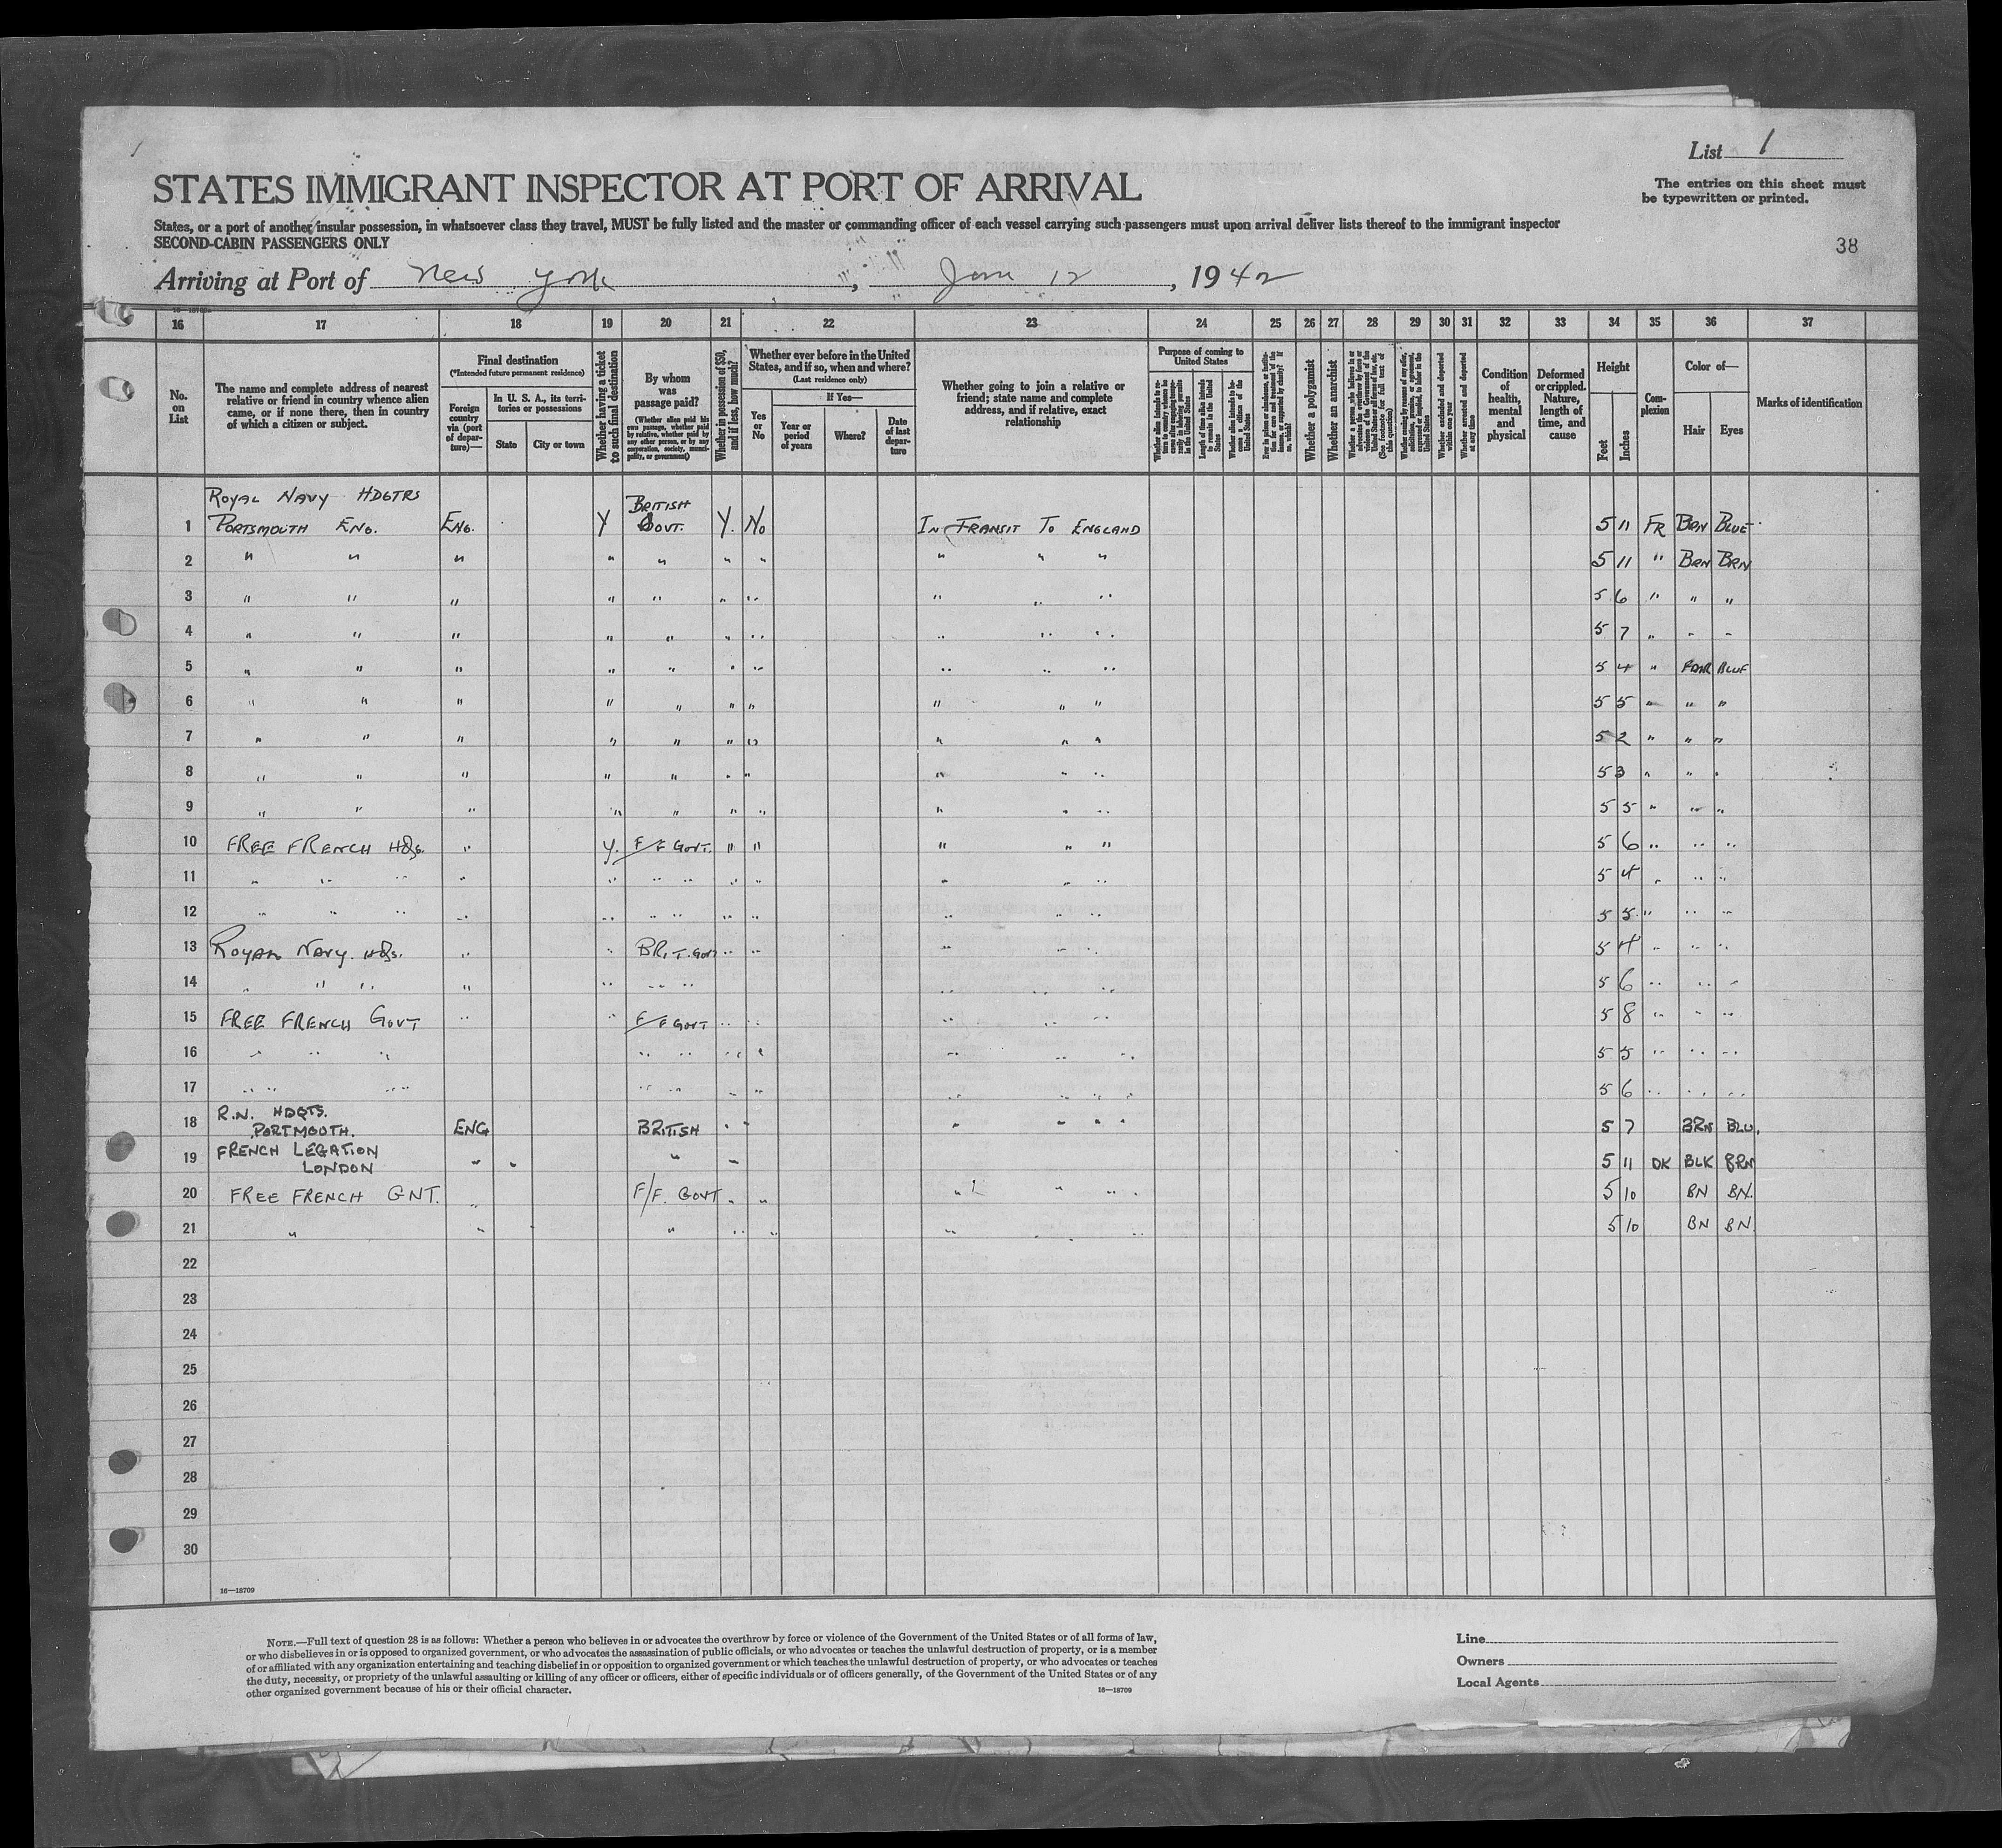 List 1
STATES IMMIGRANT INSPECTOR AT PORT OF ARRIVAL
The entries on this sheet must
be typewritten or printed.
States, or a port of another insular possession, in whatsoever class they travel, MUST be fully listed and the master or commanding officer of each vessel carrying such passengers must upon arrival deliver lists thereof to the immigrant inspector
SECOND-CABIN PASSENGERS ONLY
38
Arriving at Port of New York, Jan 12, 1942
16 17 18 19 20 21 22 23 24 25 26 27 28 29 30 31 32 33 34 35 36 37
No. on List
The name and complete address of nearest relative or friend in country whence alien came, or if none there, then in country of which a citizen or subject.
Final destination
(*Intended future permanent residence)
Foreign country via (port of departure)—
In U. S. A., its territories or possessions
State
City or town
Whether having a ticket to such final destination
By whom was passage paid?
(Whether alien paid his own passage, whether paid by relative, whether paid by any other person, or by any corporation, society, municipality, or government)
Whether in possession of $50, and if less, how much?
Whether ever before in the United States, and if so, when and where?
(Last residence only)
Yes or No
If Yes—
Year or period of years
Where?
Date of last departure
Whether going to join a relative or friend; state name and complete address, and if relative, exact relationship
Purpose of coming to United States
Length of time alien intends to remain in the United States
Whether alien intends to become a citizen of the United States
Whether a polygamist
Whether an anarchist
Whether excluded and deported within one year
Whether arrested and deported at any time
Condition of health, mental and physical
Deformed or crippled. Nature, length of time, and cause
Height
Feet
Inches
Complexion
Color of—
Hair
Eyes
Marks of identification
ROYAL NAVY HDQTRS
1 PORTSMOUTH ENG. ENG. Y BRITISH GOVT. Y. NO IN TRANSIT TO ENGLAND 5 11 FR BRN BLUE
2 " " " " " " " " " " 5 11 " BRN BRN
3 " " " " " " " " " " 5 6 " " "
4 " " " " " " " " " " 5 7 " " "
5 " " " " " " " " " " 5 4 " FAIR BLUE
6 " " " " " " " " " " 5 5 " " "
7 " " " " " " " " " " 5 2 " " "
8 " " " " " " " " " " 5 3 " " "
9 " " " " " " " " " " 5 5 " " "
10 FREE FRENCH HDQ. " Y. F/F GOVT. " " " " " 5 6 " " "
11 " " " " " " " " " " " " 5 4 " " "
12 " " " " " " " " " " " " 5 5 " " "
13 ROYAL NAVY. HDQS. " " BRIT. GOVT " " " " " 5 4 " " "
14 " " " " " " " " " " " 5 6 " " "
15 FREE FRENCH GOVT " " F/F GOVT " " " " " 5 8 " " "
16 " " " " " " " " " " 5 5 " " "
17 " " " " " " " " " " 5 6 " " "
R.N. HDQTS.
18 PORTMOUTH. ENG BRITISH " " " " " 5 7 BRN BLU.
FRENCH LEGATION
19 LONDON " " " " 5 11 DK BLK BRN
20 FREE FRENCH GNT. " F/F. GOVT " " " " " 5 10 BN BN.
21 " " " " " " " " " 5 10 BN BN.
22
23
24
25
26
27
28
29
30
16—18709
NOTE.—Full text of question 28 is as follows: Whether a person who believes in or advocates the overthrow by force or violence of the Government of the United States or of all forms of law,
or who disbelieves in or is opposed to organized government, or who advocates the assassination of public officials, or who advocates or teaches the unlawful destruction of property, or is a member
of or affiliated with any organization entertaining and teaching disbelief in or opposition to organized government or which teaches the unlawful destruction of property, or who advocates or teaches
the duty, necessity, or propriety of the unlawful assaulting or killing of any officer or officers, either of specific individuals or of officers generally, of the Government of the United States or of any
other organized government because of his or their official character.
16—18709
Line
Owners
Local Agents